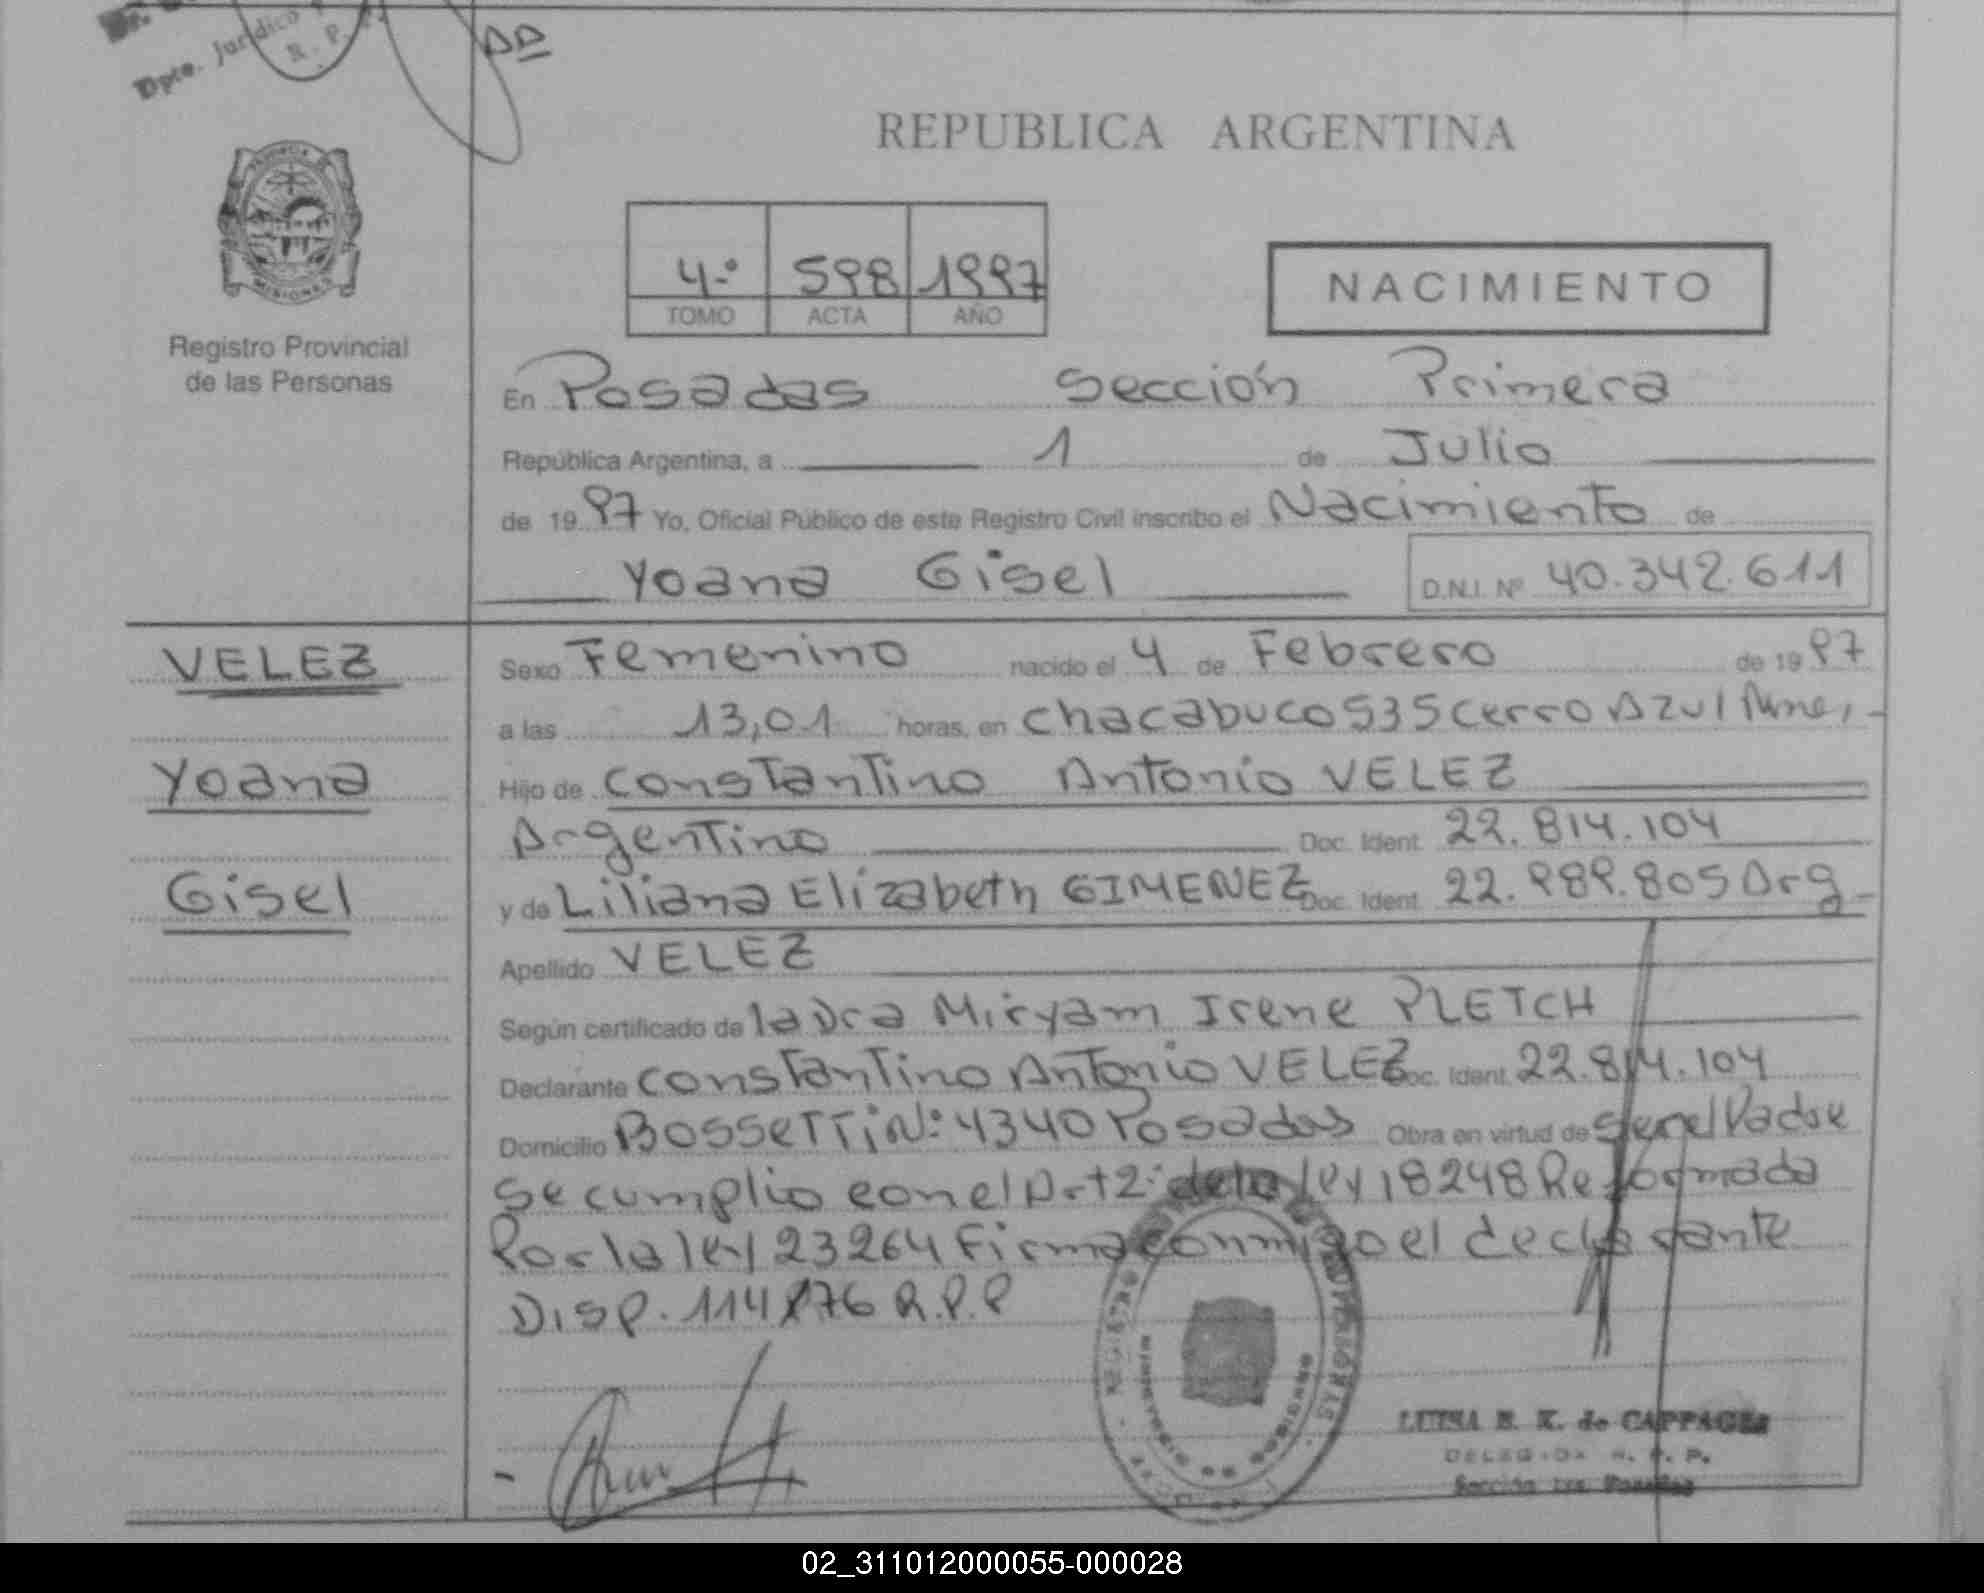 Dpto. Jurídico
R. P.
REPUBLICA ARGENTINA
PROVINCIA DE
MISIONES
Registro Provincial
de las Personas
4.º 598 1997
TOMO ACTA AÑO
NACIMIENTO
En Posadas Sección Primera
República Argentina, a 1 de Julio
de 1997 Yo, Oficial Público de este Registro Civil inscribo el Nacimiento de
Yoana Gisel D.N.I. Nº 40.342.611
VELEZ
Yoana
Gisel
Sexo Femenino nacido el 4 de Febrero de 1997
a las 13,01 horas, en Chacabuco 535 Cerro Azul
Hijo de Constantino Antonio VELEZ
Argentino Doc. Ident. 22.814.104
y de Liliana Elizabeth GIMENEZ Doc. Ident. 22.989.805 Arg
Apellido VELEZ
Según certificado de la Dra Miryam Irene PLETCH
Declarante Constantino Antonio VELEZ Doc. Ident. 22.814.104
Domicilio Bossetti Nº: 4340 Posadas Obra en virtud de ser el Padre
Se cumplio con el Art 2: de la ley 18248 Reformada
Por la ley 23264 Firma conmigo el declarante
Disp. 114/76 R.P.P
LUISA E. K. de
DELEGADA R. P. P.
Sección 1ra Posadas
02_311012000055-000028